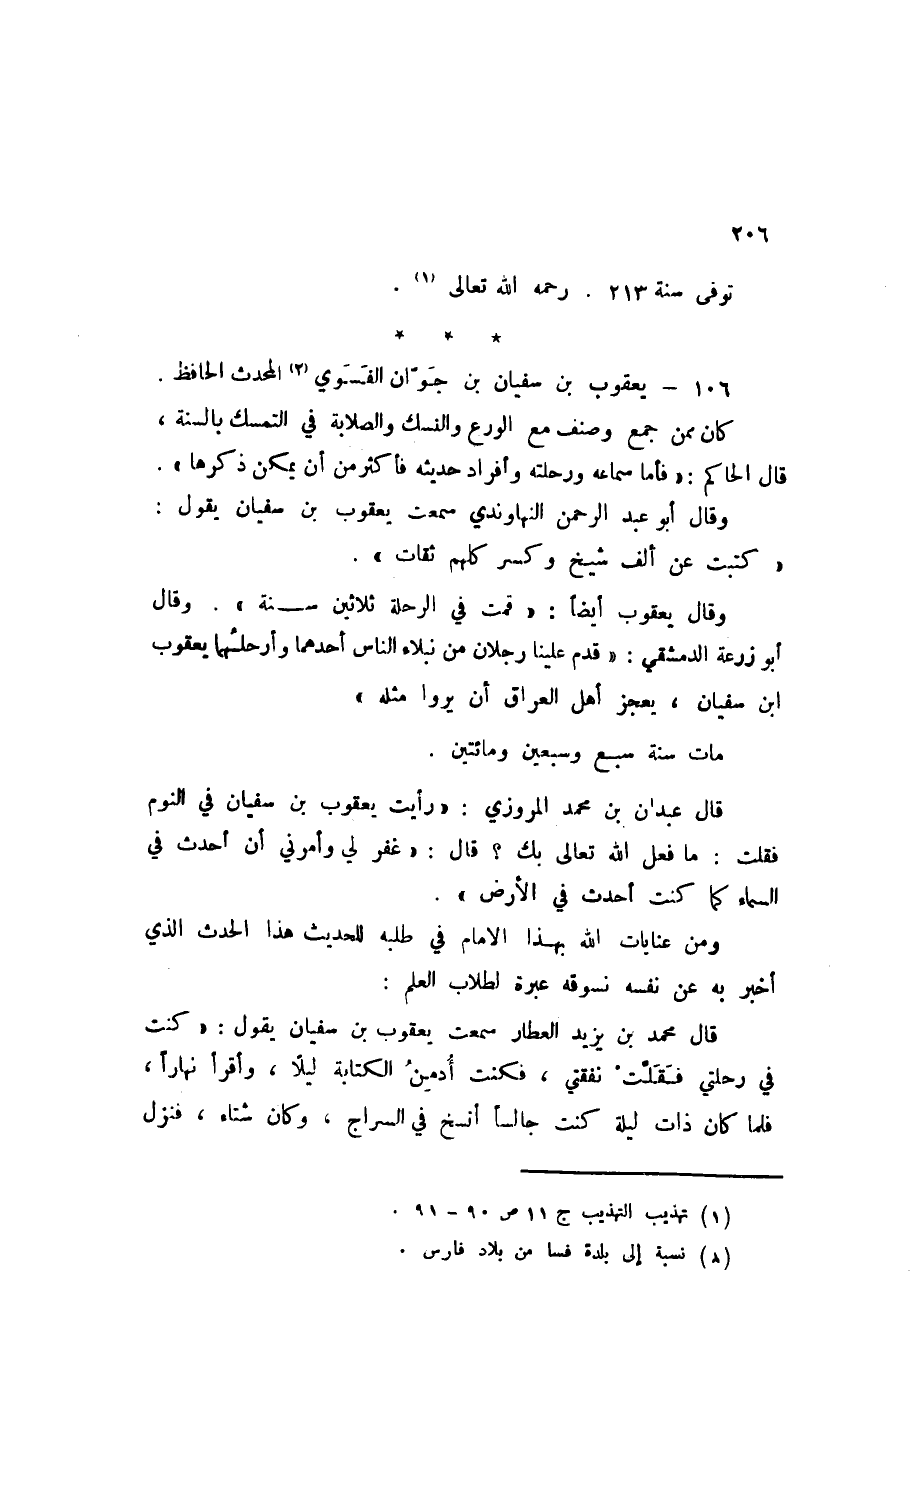 ٢٠٦
توفى سنة ٢١٣ . رحمه الله تعالى (١) .
* * *
١٠٦ – يعقوب بن سفيان بن جَوّان الفَسَوي (٢) المحدث الحافظ .
كان ممن جمع وصنف مع الورع والنسك والصلابة في التمسك بالسنة ،
قال الحاكم : « فأما سماعه ورحلته وأفراد حديثه فأكثر من أن يمكن ذكرها » .
وقال أبو عبد الرحمن النهاوندي سمعت يعقوب بن سفيان يقول :
« كتبت عن ألف شيخ وكسر كلهم ثقات » .
وقال يعقوب أيضاً : « قمت في الرحلة ثلاثين ســنة » . وقال
أبو زرعة الدمشقي : « قدم علينا رجلان من نبلاء الناس أحدهما وأرحلُهما يعقوب
ابن سفيان ، يعجز أهل العراق أن يروا مثله »
مات سنة سبع وسبعين ومائتين .
قال عبدان بن محمد المروزي : « رأيت يعقوب بن سفيان في النوم
فقلت : ما فعل الله تعالى بك ؟ قال : « غفر لي وأمرني أن أحدث في
السماء كما كنت أحدث في الأرض » .
ومن عنايات الله بهـذا الامام في طلبه للحديث هذا الحدث الذي
أخبر به عن نفسه نسوقه عبرة لطلاب العلم :
قال محمد بن يزيد العطار سمعت يعقوب بن سفيان يقول : « كنت
في رحلتي فَقَلَّتْ نفقتي ، فكنت أُدمِنُ الكتابة ليلًا ، وأقرأ نهاراً ،
فلما كان ذات ليلة كنت جالساً أنسخ في السراج ، وكان شتاء ، فنزل
(١) تهذيب التهذيب ج ١١ ص ٩٠ – ٩١ .
(٨) نسبة إلى بلدة فسا من بلاد فارس .